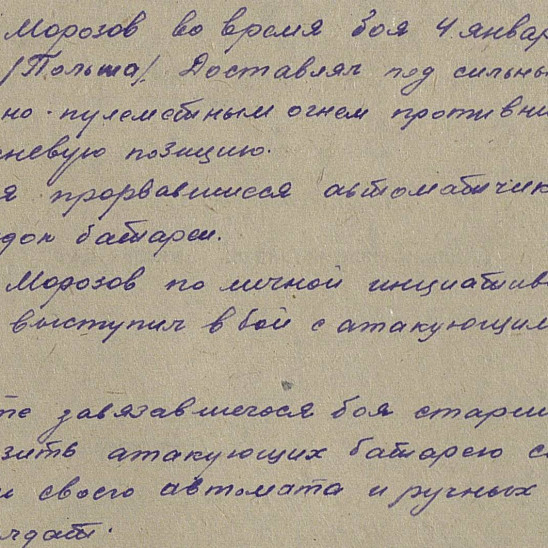 Морозов во время боя 4 январ
/Польша/. Доставлял под сильны
но-пулеметным огнем противни
невую позицию.
я прорвавшиеся автоматчик
док батареи.
Морозов по личной инициативе
выступил в бой с атакующим
те завязавшегося боя старши
зить атакующих батарею с
и своего автомата и ручных
лдат.